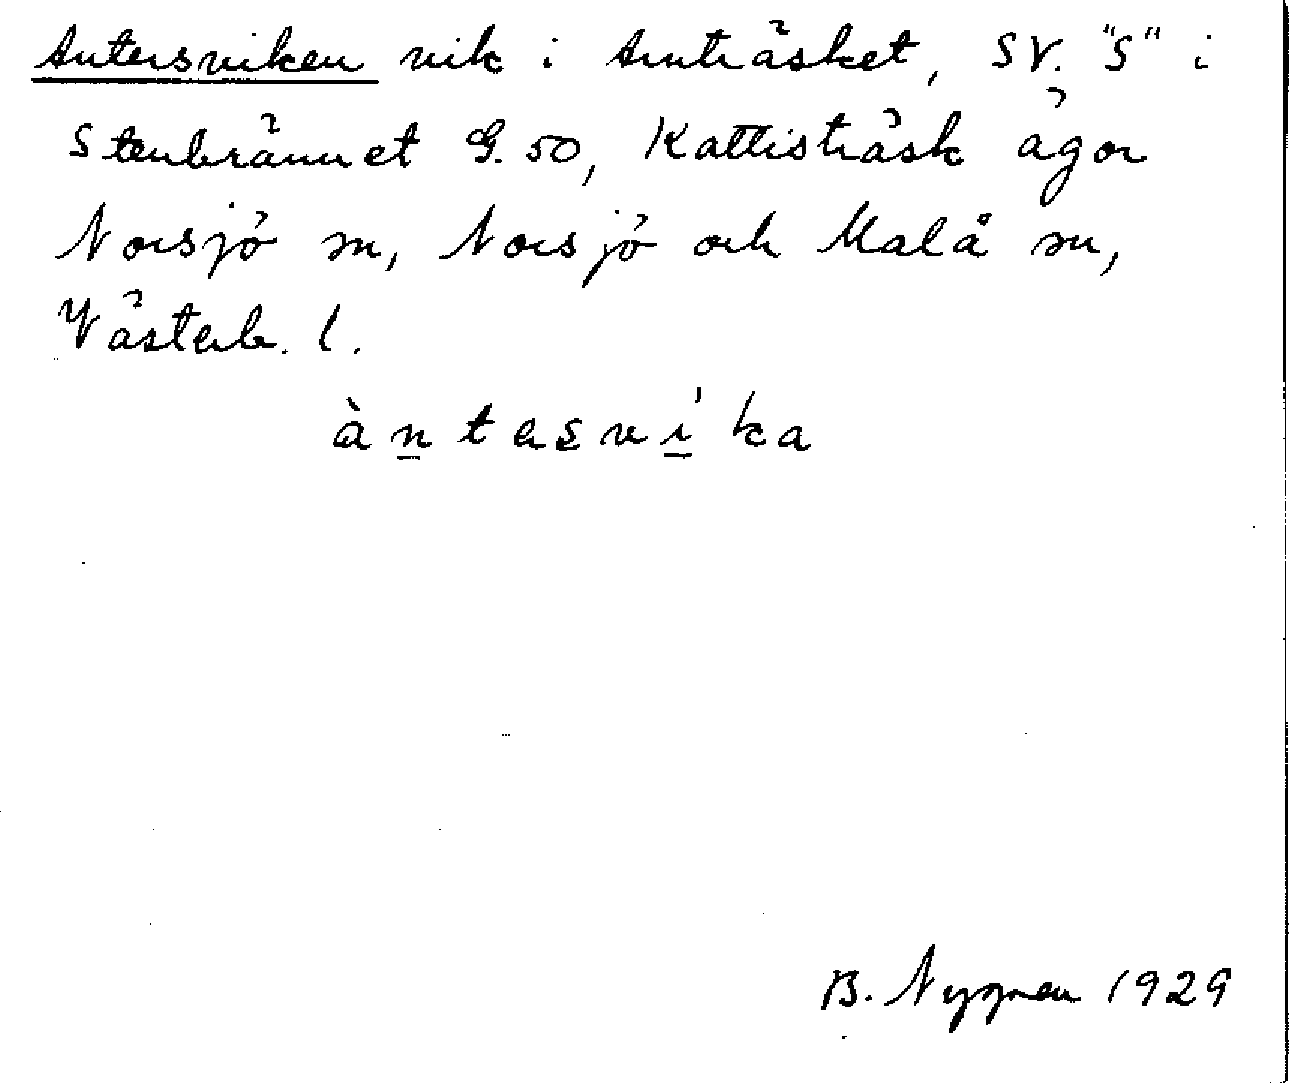 Antersviken vik i Amträsket, SV. "S" i
Stenbrännet G. 50, Kattisträsk ägor
Norsjö sn, Norsjö och Malå sn,
Västerb. l.
àntesvíka
B. Nygren 1929